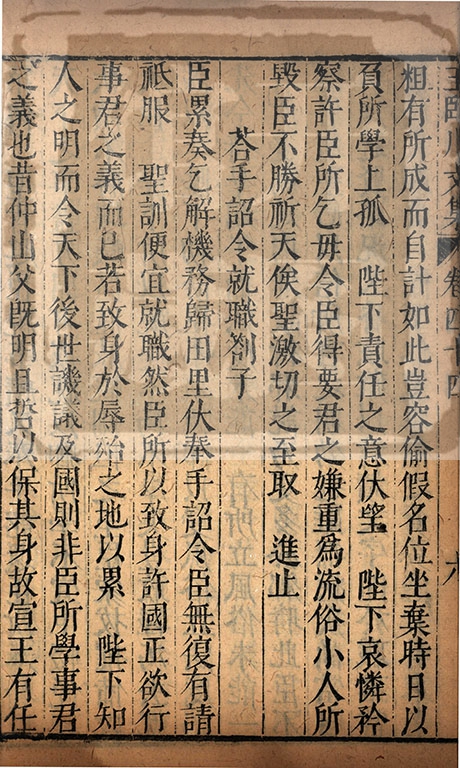 王臨川文集 卷四十四 六
粗有所成而自計如此豈容偷假名位坐棄時日以
負所學上孤 陛下責任之意伏望 陛下哀憐矜
察許臣所乞毋令臣得要君之嫌重爲流俗小人所
毀臣不勝祈天俟聖激切之至取 進止
荅手詔令就職劄子
臣累奏乞解機務歸田里伏奉手詔令臣無復有請
祗服 聖訓便宜就職然臣所以致身許國正欲行
事君之義而已若致身於辱殆之地以累 陛下知
人之明而令天下後世譏議及國則非臣所學事君
之義也昔仲山父旣明且哲以保其身故宣王有任